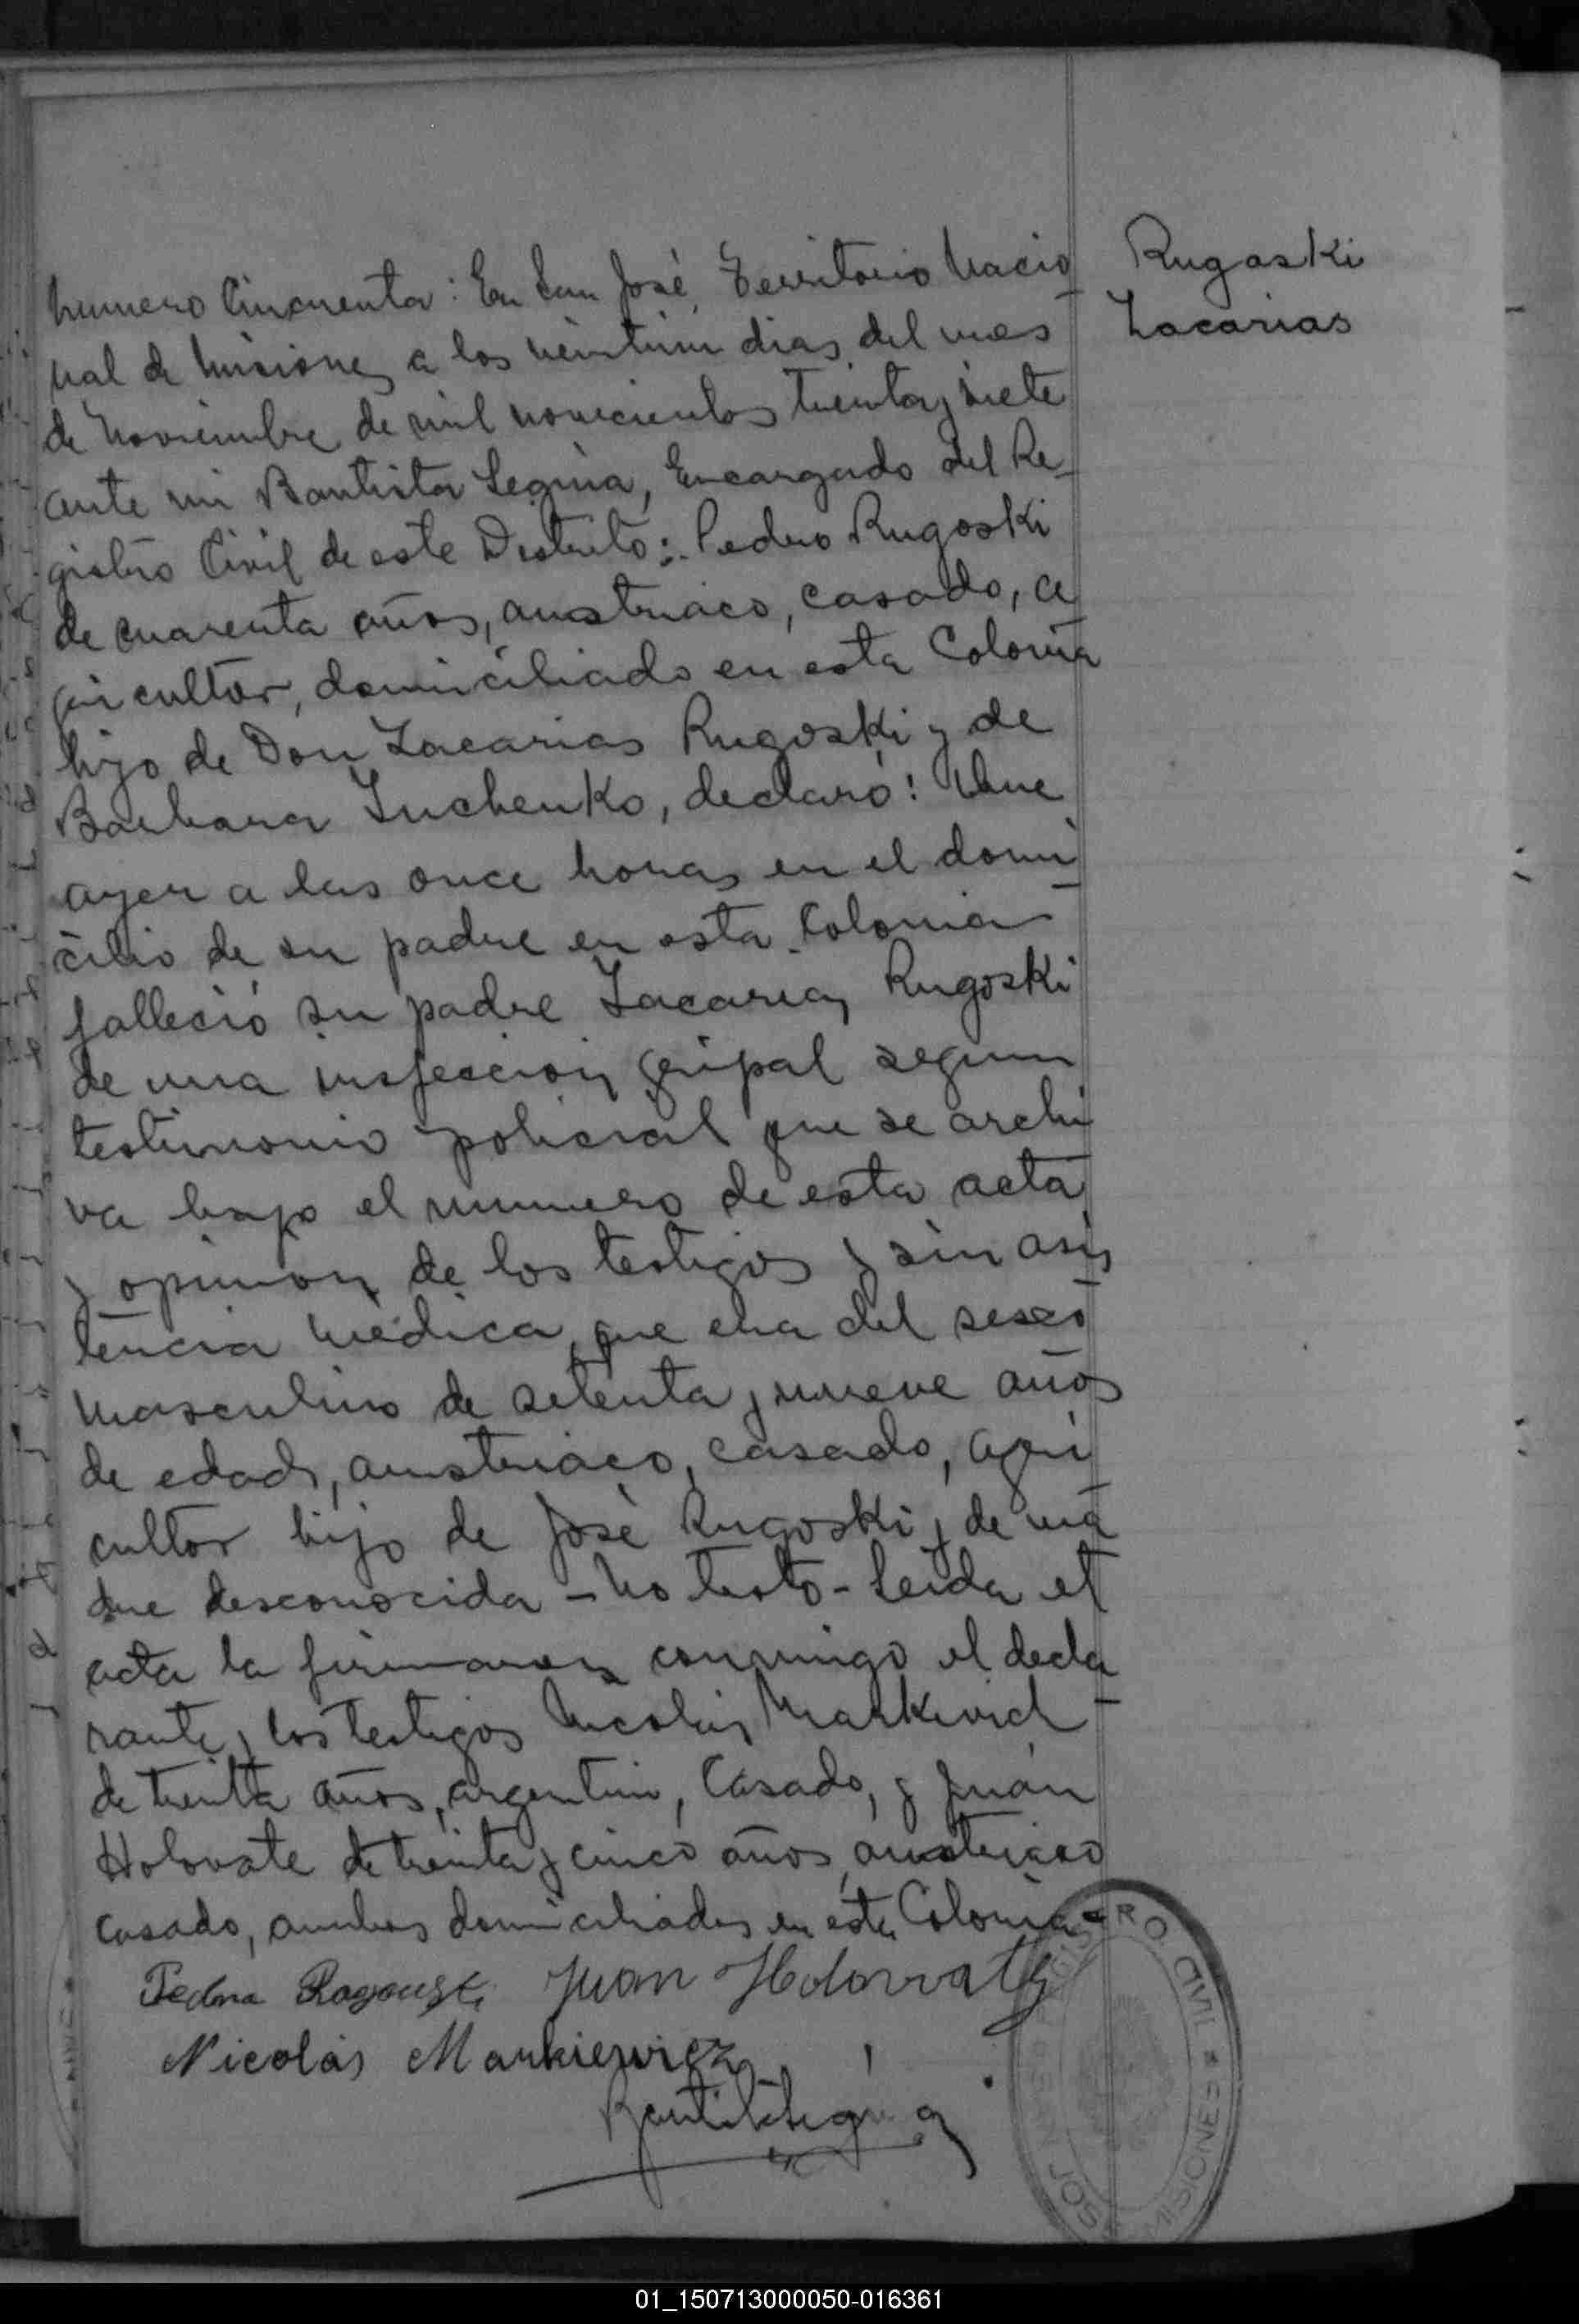 Rugaski
Zacarias
Numero Cincuenta: En San José, Territorio Nacio
nal de Misiones a los veintiun dias del mes
de Noviembre de mil novecientos treinta y siete
ante mi Bautista Seguia, Encargado del Re-
gistro Civil de este Distrito: Pedro Rugoski
de cuarenta años, austriaco, casado, a
gricultor, domiciliado en esta Colonia
hijo de Don Zacarias Rugoski y de
Barbara Juchenko, declaró: Que
ayer a las once horas en el domi
cilio de su padre en esta Colonia
fallecio su padre Zacarias Rugoski
de una infeccion gripal segun
testimonio policial que se archi
va bajo el numero de esta acta
y opinion de los testigos y sin asis
tencia médica, que era del sexo
masculino de setenta y nueve años
de edad, austriaco, casado, agri
cultor hijo de José Rugoski y de ma
dre desconocida - No testo - Leida el
acta la firmaron conmigo el decla
rante y los testigos Nicolas Markevich
de treinta años, argentino, Casado, y Juan
Holovate de treinta y cinco años, austriaco
casado, ambos domiciliados en esta Colonia
Pedro Rogouski Juan Holovaty
Nicolás Markiewicz
REGISTRO CIVIL
SAN JOSE MISIONES
01_150713000050-016361